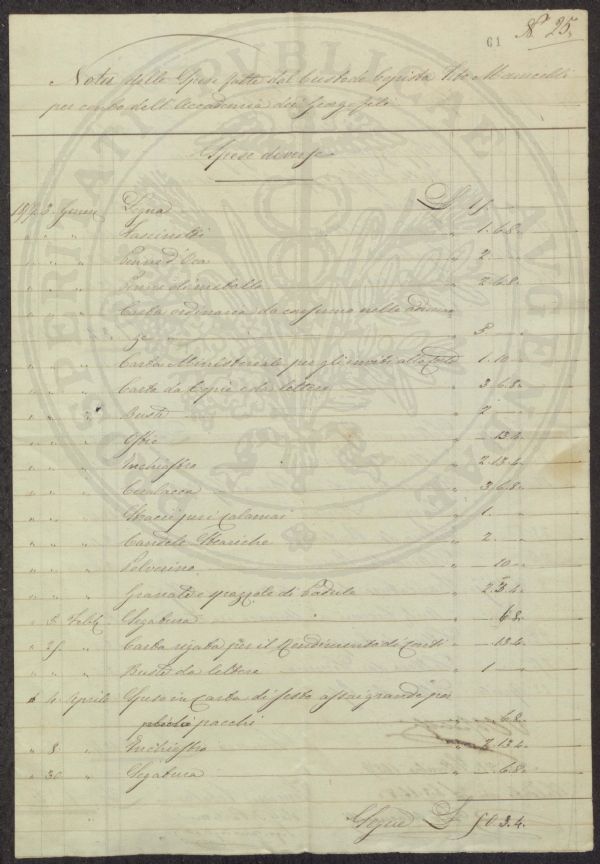 61 N.° 25.
Nota delle Spese fatte dal Custode Copista Manicelli
per conto dell'Accademia dei Georgofili
Spese diverse
3 Genn. Legna £
" " " Fascinotti " 1. 6. 8.
" " " Penne d'Oca " 2. —
" " " Penne di metallo " 2. 6. 8.
" " " Carta ordinaria da consumo nelle
" 5. —
" " " Carta Ministeriale per gl'inviti alle " 1. 10
" " " Carta da Copie e da lettere " 3. 6. 8.
" " " Buste " 2 —
" " " Ostie " — 13. 4.
" " " Inchiostro " 2. 13. 4.
" " " Ceralacca " 3. 6. 8.
" " " Stracci per i calamai " 1. —
" " " Candele Steariche " 2. —
" " " Polverino " — 10 —
" " " Granate e spazzole di Padule " 2. 3. 4.
" 5. Febb. Segatura " — 6. 8.
" 25. " Carta rigata per il Rendimento di Conti " — 13. 4.
" " " Buste da lettere " 1 —
" 4. Aprile Spesa in Carta di sesto assai grande per
plichi pacchi " — 6. 8.
" 8. " Inchiostro " 2. 13. 4.
" 30 " Segatura " — 6. 8.
Segue £ 50. 3. 4.
PROSPERITATI PVBLICAE AVGENDAE